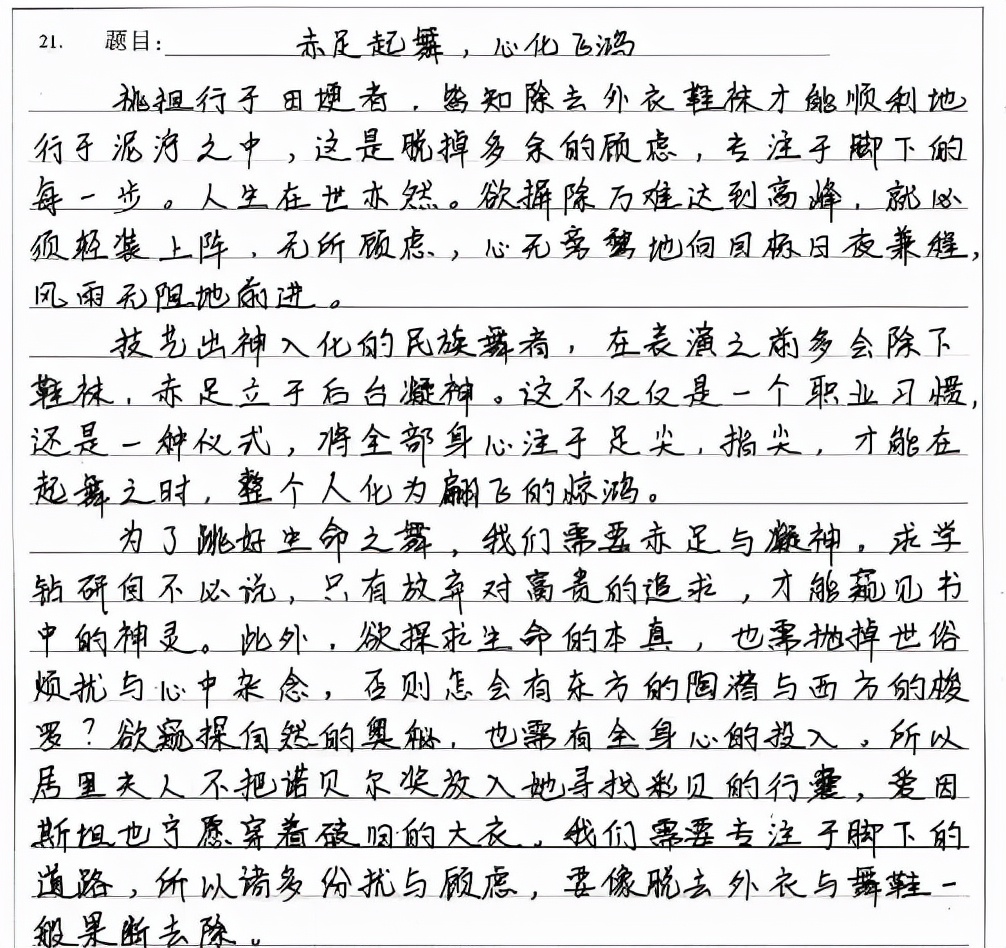 21. 题目: 赤足起舞，心化飞鸿
挑担行于田埂者，皆知除去外衣鞋袜才能顺利地
行于泥泞之中，这是脱掉多余的顾虑，专注于脚下的
每一步。人生在世亦然。欲摒除万难达到高峰，就必
须轻装上阵，无所顾虑，心无旁骛地向目标日夜兼程，
风雨无阻地前进。
技艺出神入化的民族舞者，在表演之前多会除下
鞋袜，赤足立于后台凝神。这不仅仅是一个职业习惯，
还是一种仪式，将全部身心注于足尖，指尖，才能在
起舞之时，整个人化为翩飞的惊鸿。
为了跳好生命之舞，我们需要赤足与凝神。求学
钻研自不必说，只有放弃对富贵的追求，才能窥见书
中的神灵。此外，欲探求生命的本真，也需抛掉世俗
烦扰与心中杂念，否则怎会有东方的陶潜与西方的梭
罗？欲窥探自然的奥秘，也需有全身心的投入。所以
居里夫人不把诺贝尔奖放入她寻找彩贝的行囊，爱因
斯坦也宁愿穿着破旧的大衣。我们需要专注于脚下的
道路，所以诸多纷扰与顾虑，要像脱去外衣与舞鞋一
般果断去除。